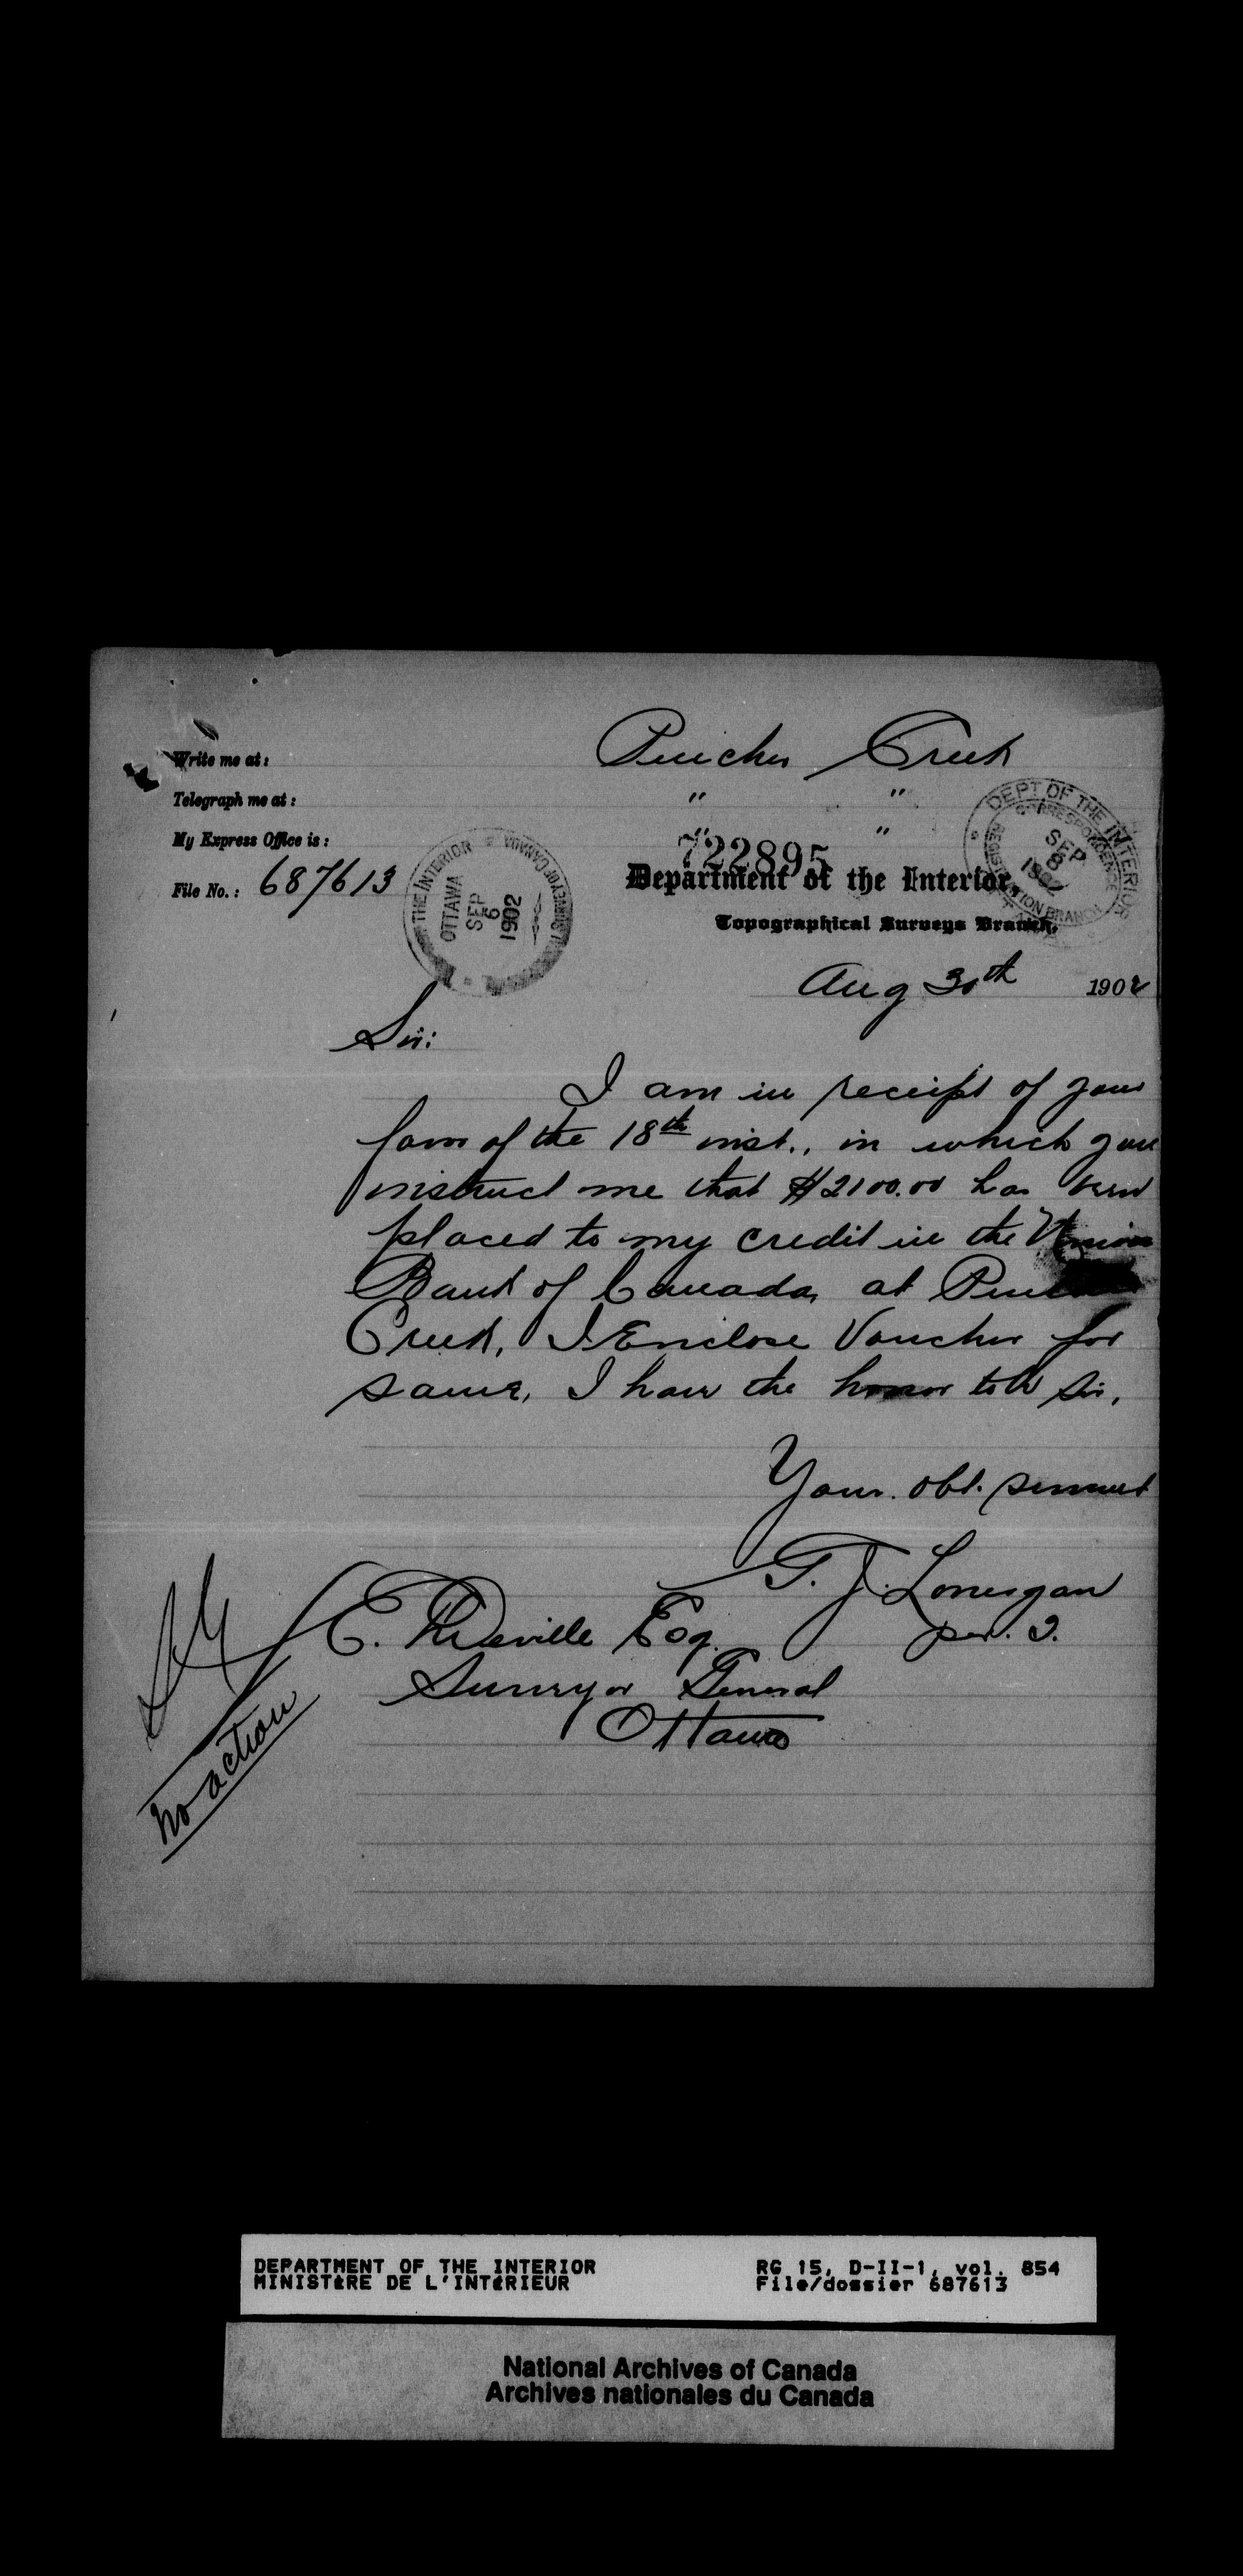 Write me at: Pincher Creek
Telegraph me at: " "
My Express Office is: " "
722895
File No.: 687613
Department of the Interior,
Topographical Surveys Branch,
THE INTERIOR
OTTAWA
SEP
6
1902
DEPT OF THE INTERIOR
CORRESPONDENCE
SEP
1902
REGISTRATION BRANCH
Aug 30th 1902
Sir:
I am in receipt of your
favor of the 18th inst., in which you
instruct me that $2100.00 has been
placed to my credit in the Union
Bank of Canada, at Pincher
Creek, I Enclose Voucher for
same, I have the honor to be Sir,
Your. obt. servant
T. J. Lonergan
per.
E. Deville Esq.
Surveyor General
Ottawa
no action
DEPARTMENT OF THE INTERIOR RG 15, D-II-1, vol. 854
MINISTÈRE DE L'INTÉRIEUR File/dossier 687613
National Archives of Canada
Archives nationales du Canada